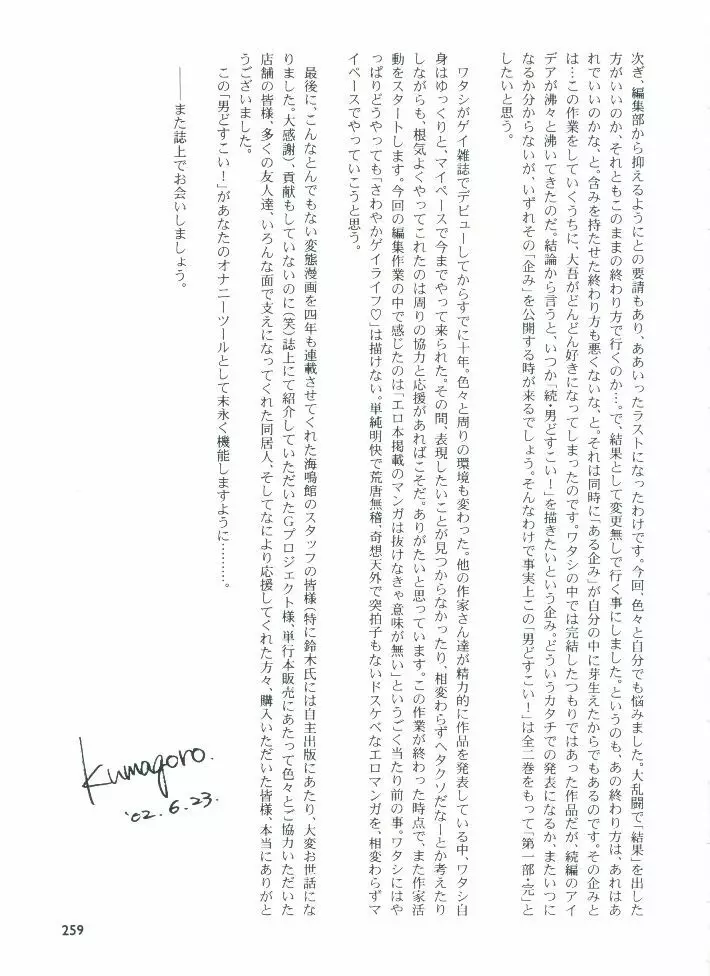 次ぎ、編集部から抑えるようにとの要請もあり、ああいったラストになったわけです。今回、色々と自分でも悩みました。大乱闘で「結果」を出した
方がいいのか、それともこのままの終わり方で行くのか…。で、結果として変更無しで行く事にしました。というのも、あの終わり方は、あれはあ
れでいいのかな、と。含みを持たせた終わり方も悪くないな、と。それは同時に「ある企み」が自分の中に芽生えたからでもあるのです。その企みと
は…この作業をしていくうちに、大吾がどんどん好きになってしまったのです。ワタシの中では完結したつもりではあった作品だが、続編のアイ
デアが沸々と沸いてきたのだ。結論から言うと、いつか「続・男どすこい！」を描きたいという企み。どういうカタチでの発表になるか、またいつに
なるか分からないが、いずれその「企み」を公開する時が来るでしょう。そんなわけで事実上この「男どすこい！」は全二巻をもって「第一部・完」と
したいと思う。
ワタシがゲイ雑誌でデビューしてからすでに十年。色々と周りの環境も変わった。他の作家さん達が精力的に作品を発表している中、ワタシ自
身はゆっくりと、マイペースで今までやって来られた。その間、表現したいことが見つからなかったり、相変わらずヘタクソだなーとか考えたり
しながらも、根気よくやってこれたのは周りの協力と応援があればこそだ。ありがたいと思っています。この作業が終わった時点で、また作家活
動をスタートします。今回の編集作業の中で感じたのは「エロ本掲載のマンガは抜けなきゃ意味が無い」というごく当たり前の事。ワタシにはや
っぱりどうやっても「さわやかゲイライフ♡」は描けない。単純明快で荒唐無稽、奇想天外で突拍子もないドスケベなエロマンガを、相変わらずマ
イペースでやっていこうと思う。
最後に、こんなとんでもない変態漫画を四年も連載させてくれた海鳴館のスタッフの皆様（特に鈴木氏には自主出版にあたり、大変お世話にな
りました。大感謝）、貢献もしていないのに（笑）誌上にて紹介していただいたGプロジェクト様、単行本販売にあたって色々とご協力いただいた
店舗の皆様、多くの友人達、いろんな面で支えになってくれた同居人、そしてなにより応援してくれた方々、購入いただいた皆様、本当にありがと
うございました。
この「男どすこい！」があなたのオナニーツールとして末永く機能しますように………。
――また誌上でお会いしましょう。
Kumagoro.
'02.6.23.
259